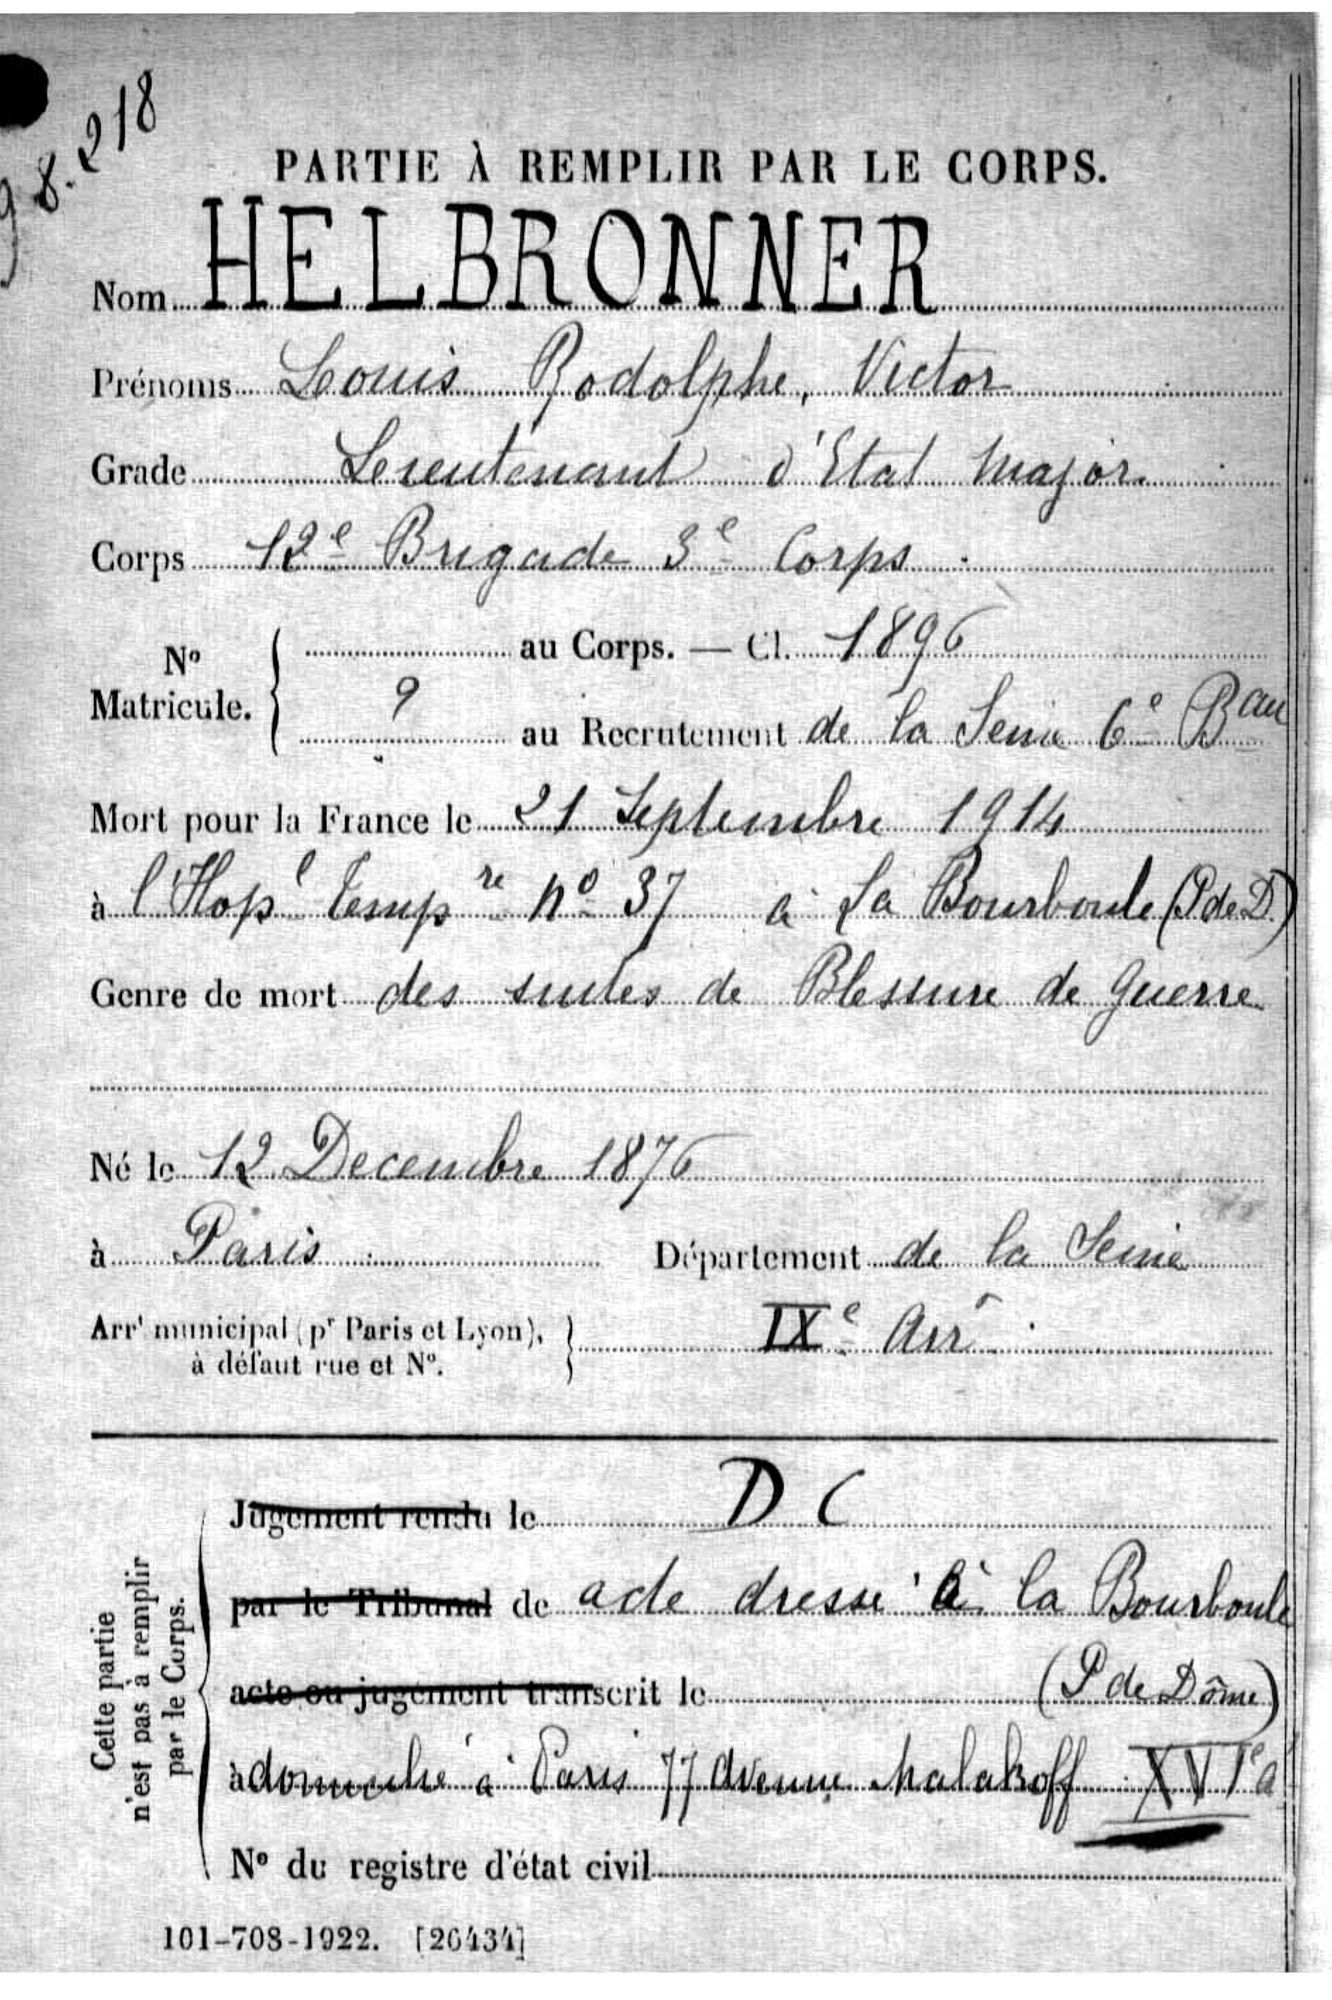 98.218
PARTIE À REMPLIR PAR LE CORPS.
Nom HELBRONNER
Prénoms Louis Rodolphe, Victor
Grade Lieutenant d'Etat Major.
Corps 12e Brigade 3e Corps
No Matricule. { au Corps. — Cl. 1896
9 au Recrutement de la Seine 6e Bau
Mort pour la France le 21 Septembre 1914
à l'Hopl Tempre no 37 à La Bourboule (P de D.)
Genre de mort des suites de Blessure de Guerre
Né le 12 Decembre 1876
à Paris Département de la Seine
Arrt municipal (pr Paris et Lyon), } IXe Arr
à défaut rue et No.
Cette partie
n'est pas à remplir
par le Corps.
Jugement rendu le D C
par le Tribunal de acte dressé à la Bourboule
acte ou jugement transcrit le (P de Dôme)
à domicilié à Paris 77 avenue Malakoff XVIe a
No du registre d'état civil
101-708-1922. [26434]